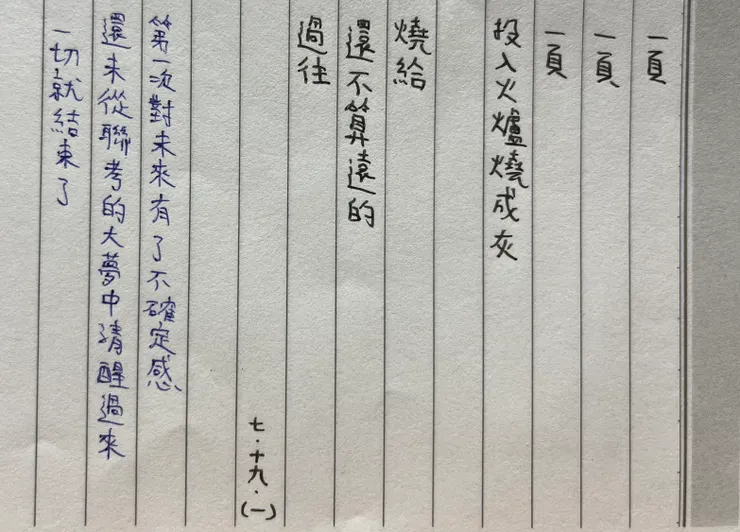 一頁
一頁
一頁
投入火爐燒成灰
燒給
還不算遠的
過往
七.十九.(一)
第一次對未來有了不確定感
還未從聯考的大夢中清醒過來
一切就結束了